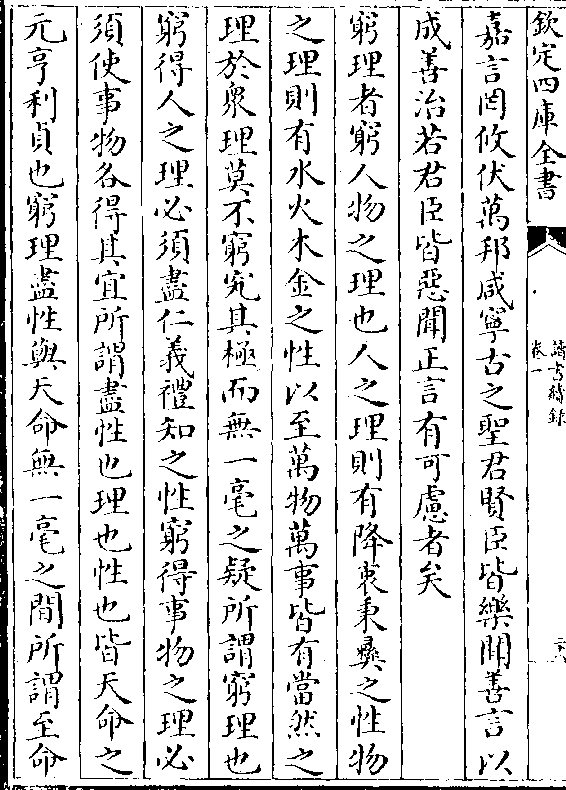 欽定四庫全書
讀書續錄
卷一
嘉言罔攸伏萬邦咸寧古之聖君賢臣皆樂聞善言以
成善治若君臣皆惡聞正言有可慮者矣
窮理者窮人物之理也人之理則有降衷秉彝之性物
之理則有水火木金之性以至萬物萬事皆有當然之
理於衆理莫不窮究其極而無一毫之疑所謂窮理也
窮得人之理必須盡仁義禮知之性窮得事物之理必
須使事物各得其宜所謂盡性也理也性也皆天命之
元亨利貞也窮理盡性與天命無一毫之間所謂至命